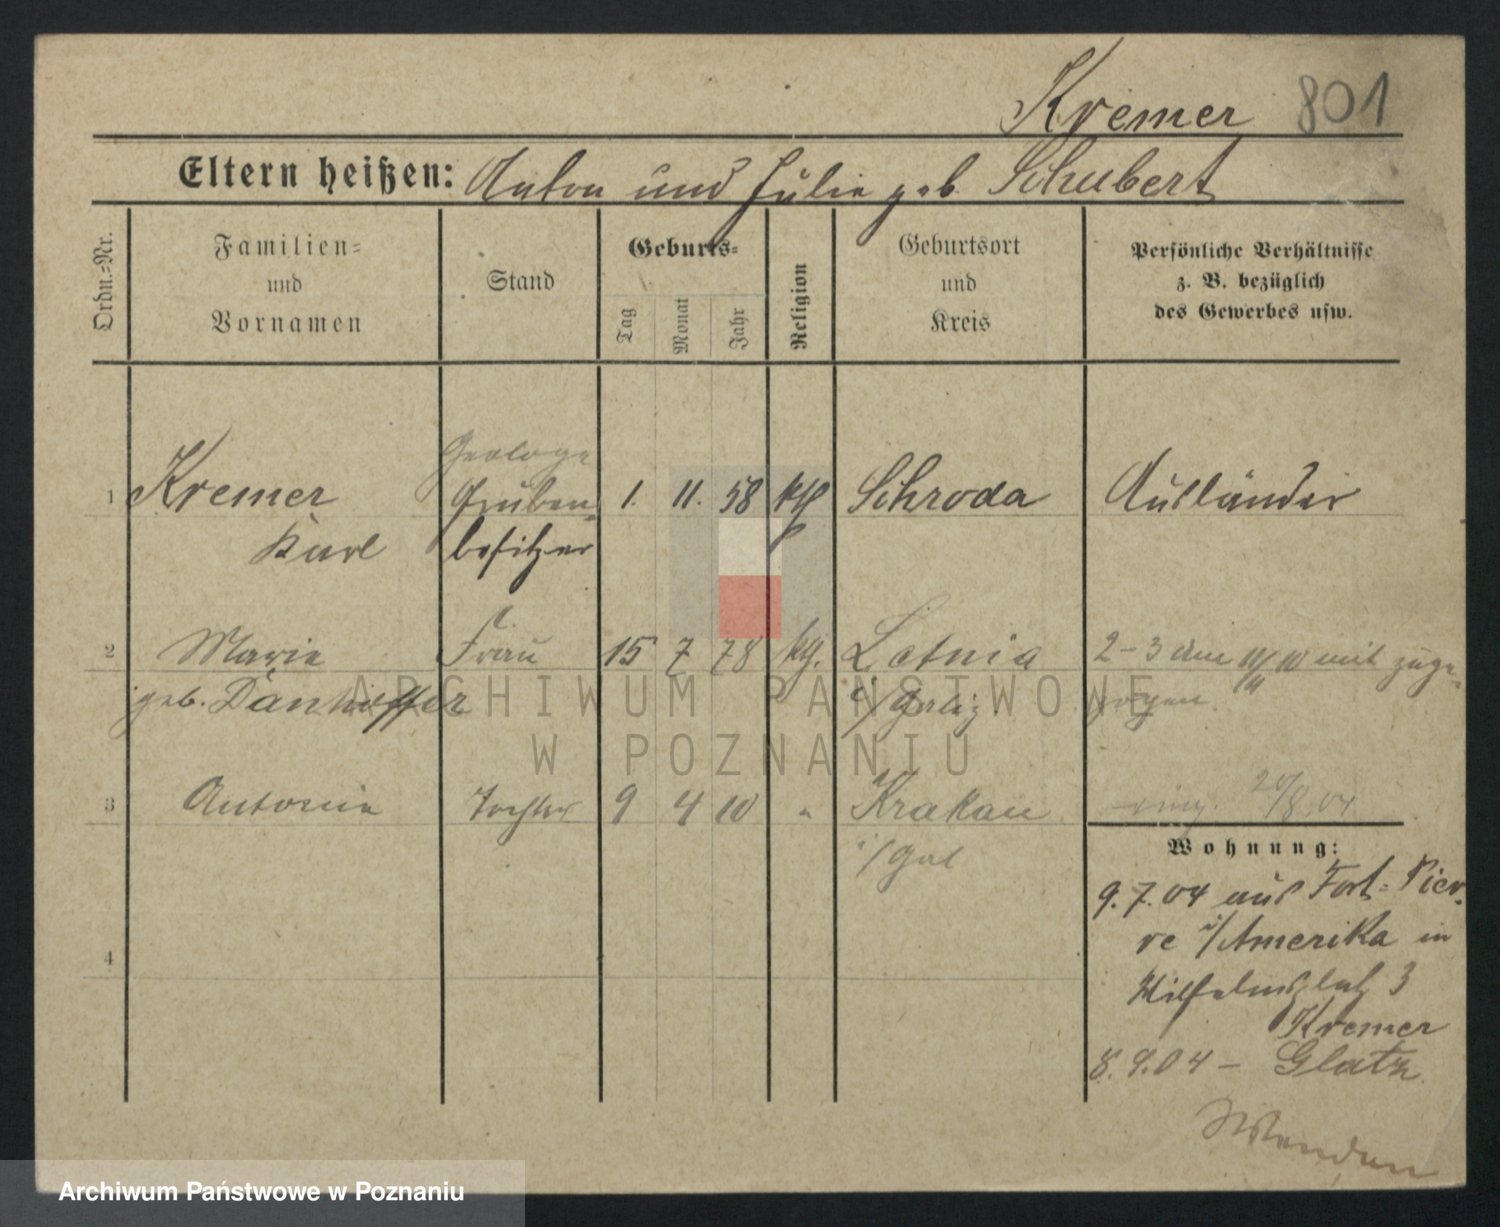 Kremer 801
Eltern heißen: Anton und Julie geb. Schubert
Ordn.-Nr.
Familien-
und
Vornamen
Stand
Geburts-
Tag
Monat
Jahr
Religion
Geburtsort
und
Kreis
Persönliche Verhältnisse
z. B. bezüglich
des Gewerbes usw.
Geologe
1 Kremer Gruben- 1. 11. 58 kth Schroda Ausländer
Karl besitzer
2 Marie Frau 15 7 78 kth. Letnia 2-3 am 11/11 10 mit zuge-
geb. Danhoffer i/Galiz. zogen.
3 Antonie Tochter 9 4 10 " Krakau 20/8.04
i/Gal
Wohnung:
9.7.04 aus Fort-Pier-
re i/Amerika in
Wilhelmsplatz 3
Kremer
4
8.9.04 - Glatz
ARCHIWUM PAŃSTWOWE
W POZNANIU
Archiwum Państwowe w Poznaniu